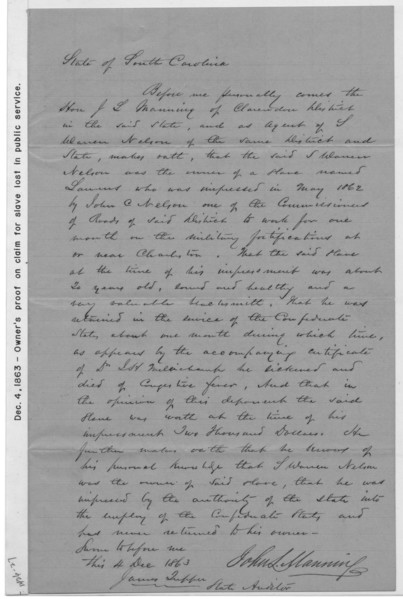 State of South Carolina
Before me personally comes the
Hon J L Manning of Clarendon District
in the said State, and as agent of S
Warren Nelson of the same District and
State, makes oath, that the said S Warren
Nelson was the owner of a slave named
who was impressed in May 1862
by John C Nelson one of the Commissioners
of Roads of said District to work for one
month on the military fortifications at
or near Charleston. That the said slave
at the time of his impressment was about
20 years old, sound and healthy and a
very valuable blacksmith. That he was
retained in the service of the Confederate
States about one month during which time,
as appears by the accompanying certificate
of Dr he sickened and
died of Congestive fever, And that in
the opinion of this deponent the said
slave was worth at the time of his
impressment Two Thousand Dollars. He
further makes oath that he knows of
his personal knowledge that S Warren Nelson
was the owner of said slave, that he was
impressed by the authority of the State into
the employ of the Confederate States and
has never returned to his owner—
Sworn to before me
this 4 Dec 1863
John L Manning
James Tupper
State Auditor
Dec. 4, 1863 - Owner's proof on claim for slave lost in public service.